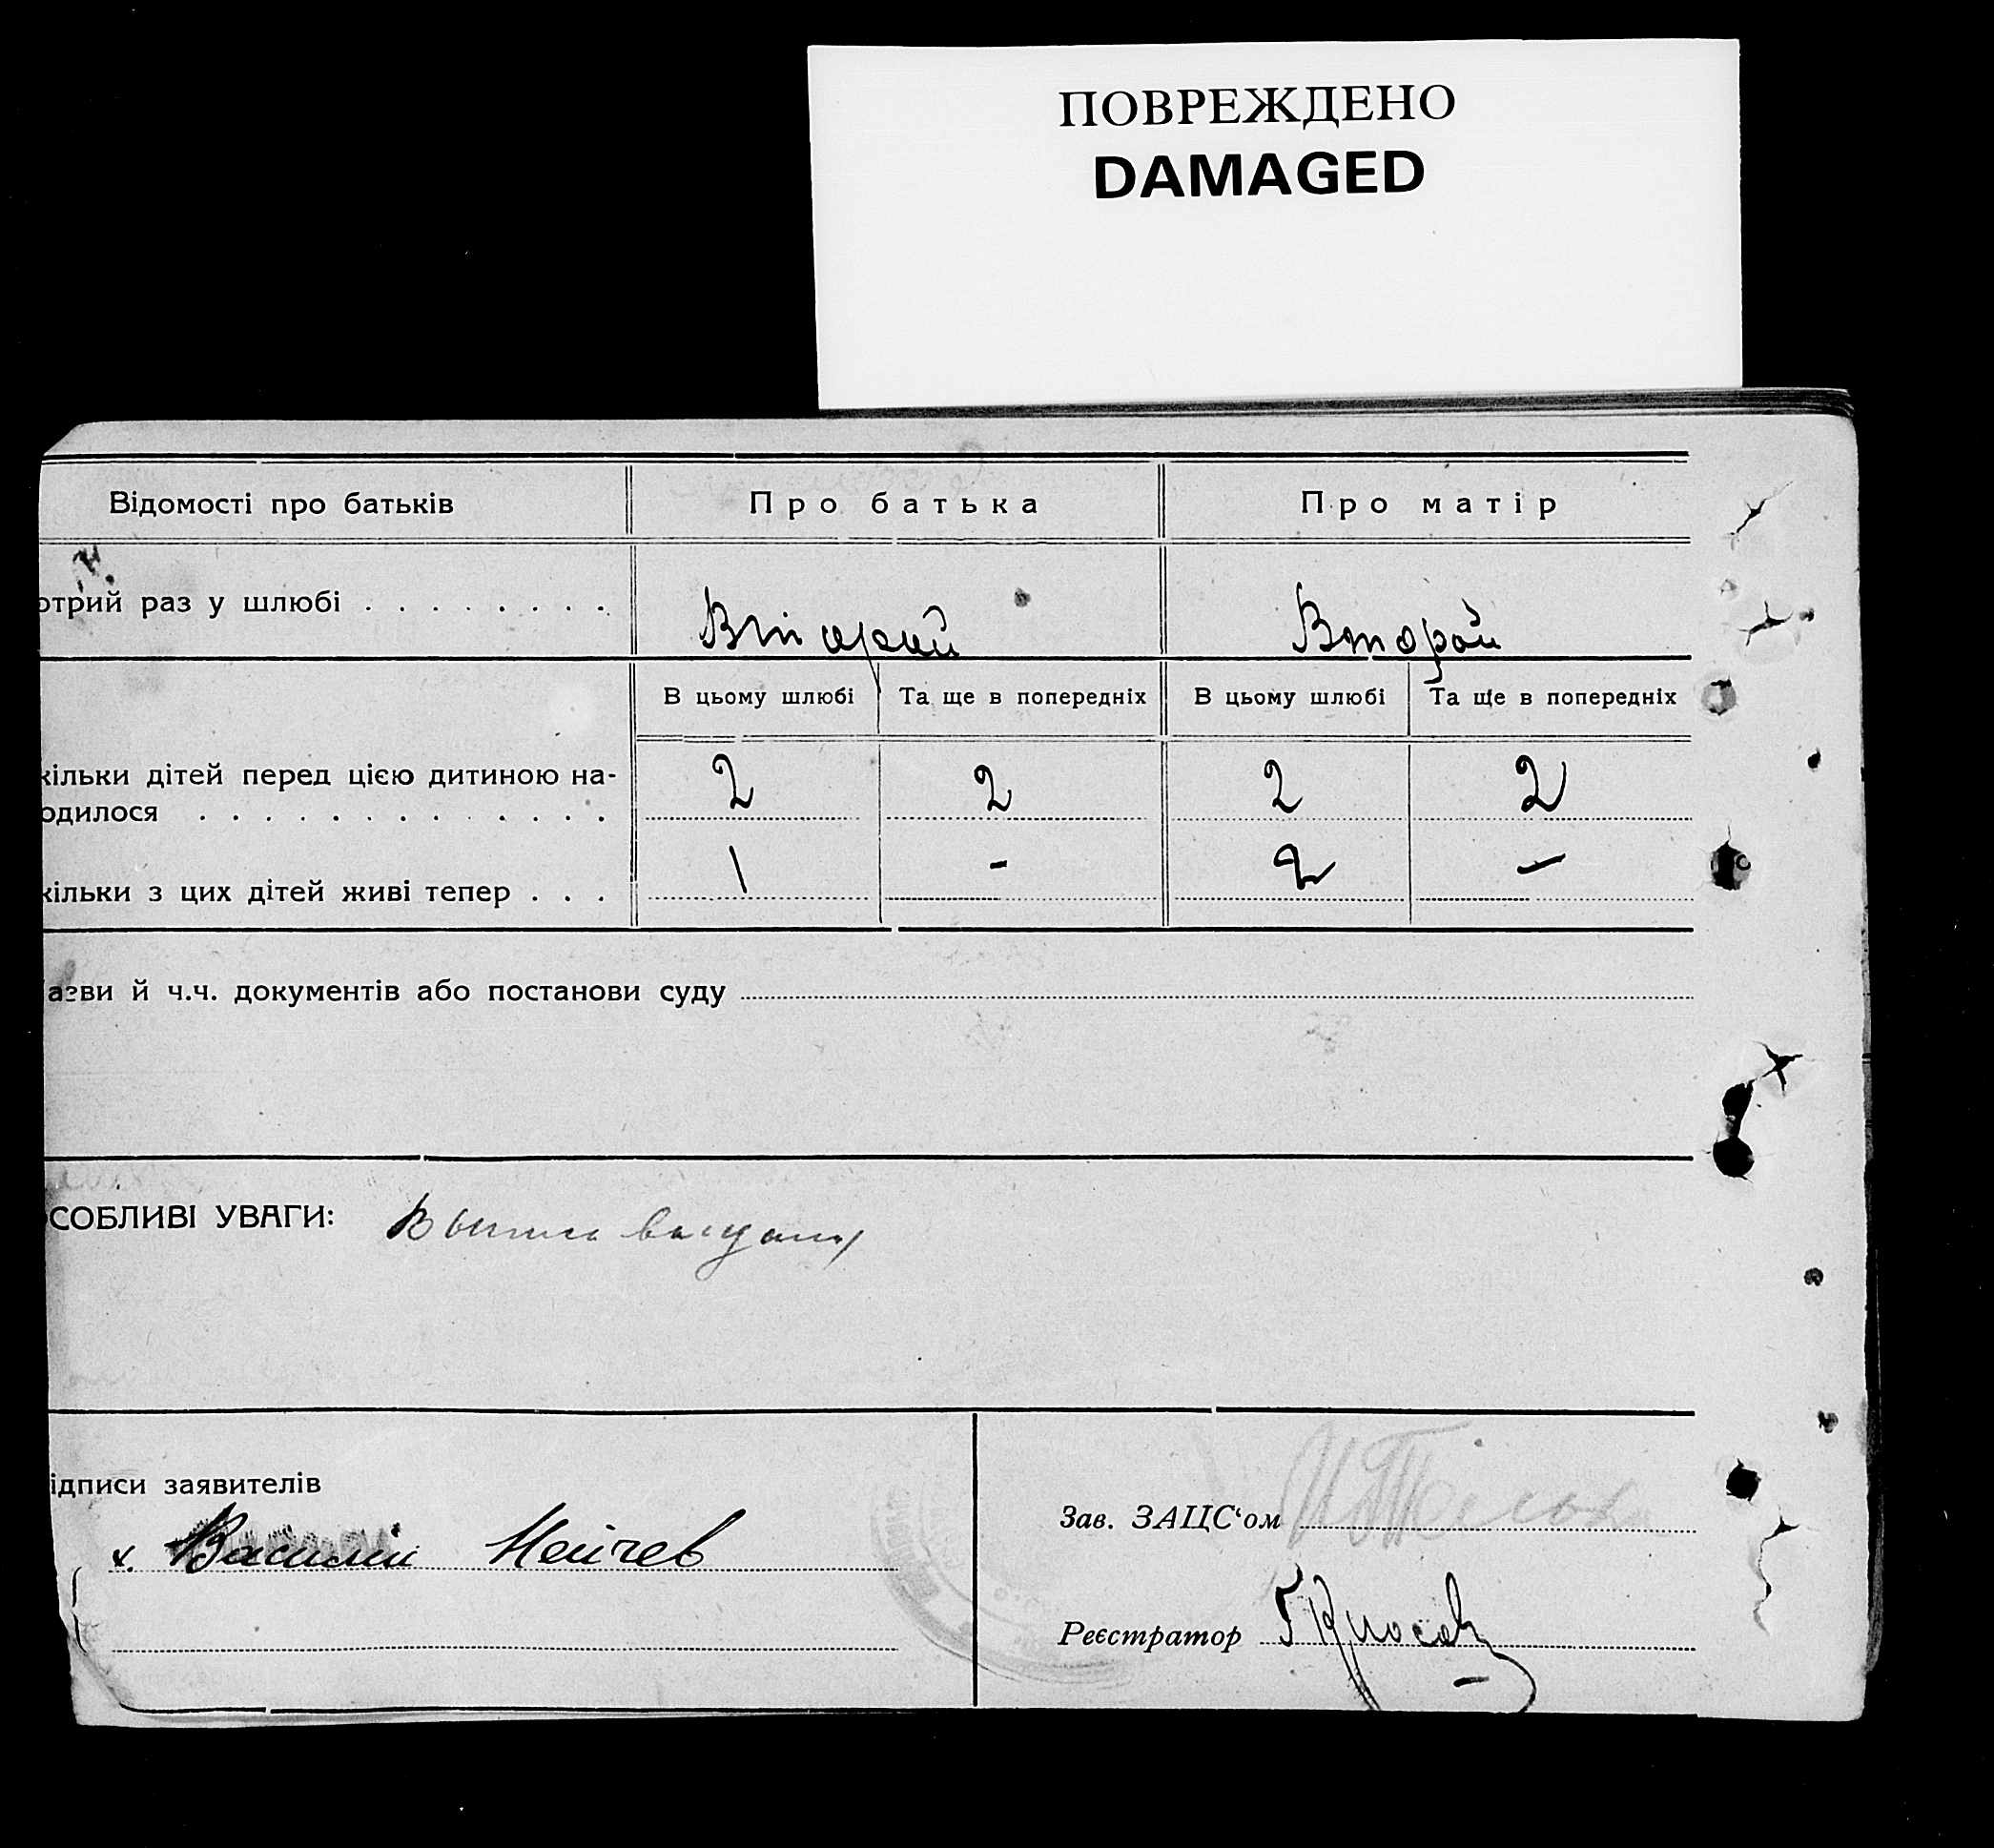 ПОВРЕЖДЕНО
DAMAGED
Відомості про батьків Про батька Про матір
отрий раз у шлюбі Второй Второй
В цьому шлюбі Та ще в попередніх В цьому шлюбі Та ще в попередніх
кільки дітей перед цією дитиною на-
одилося 2 2 2 2
кільки з цих дітей живі тепер 1 - 2 -
азви й ч.ч. документів або постанови суду
СОБЛИВІ УВАГИ: Выпись выдана
ідписи заявителів
Зав. ЗАЦС‘ом
х. Василий Нейчев
Реєстратор